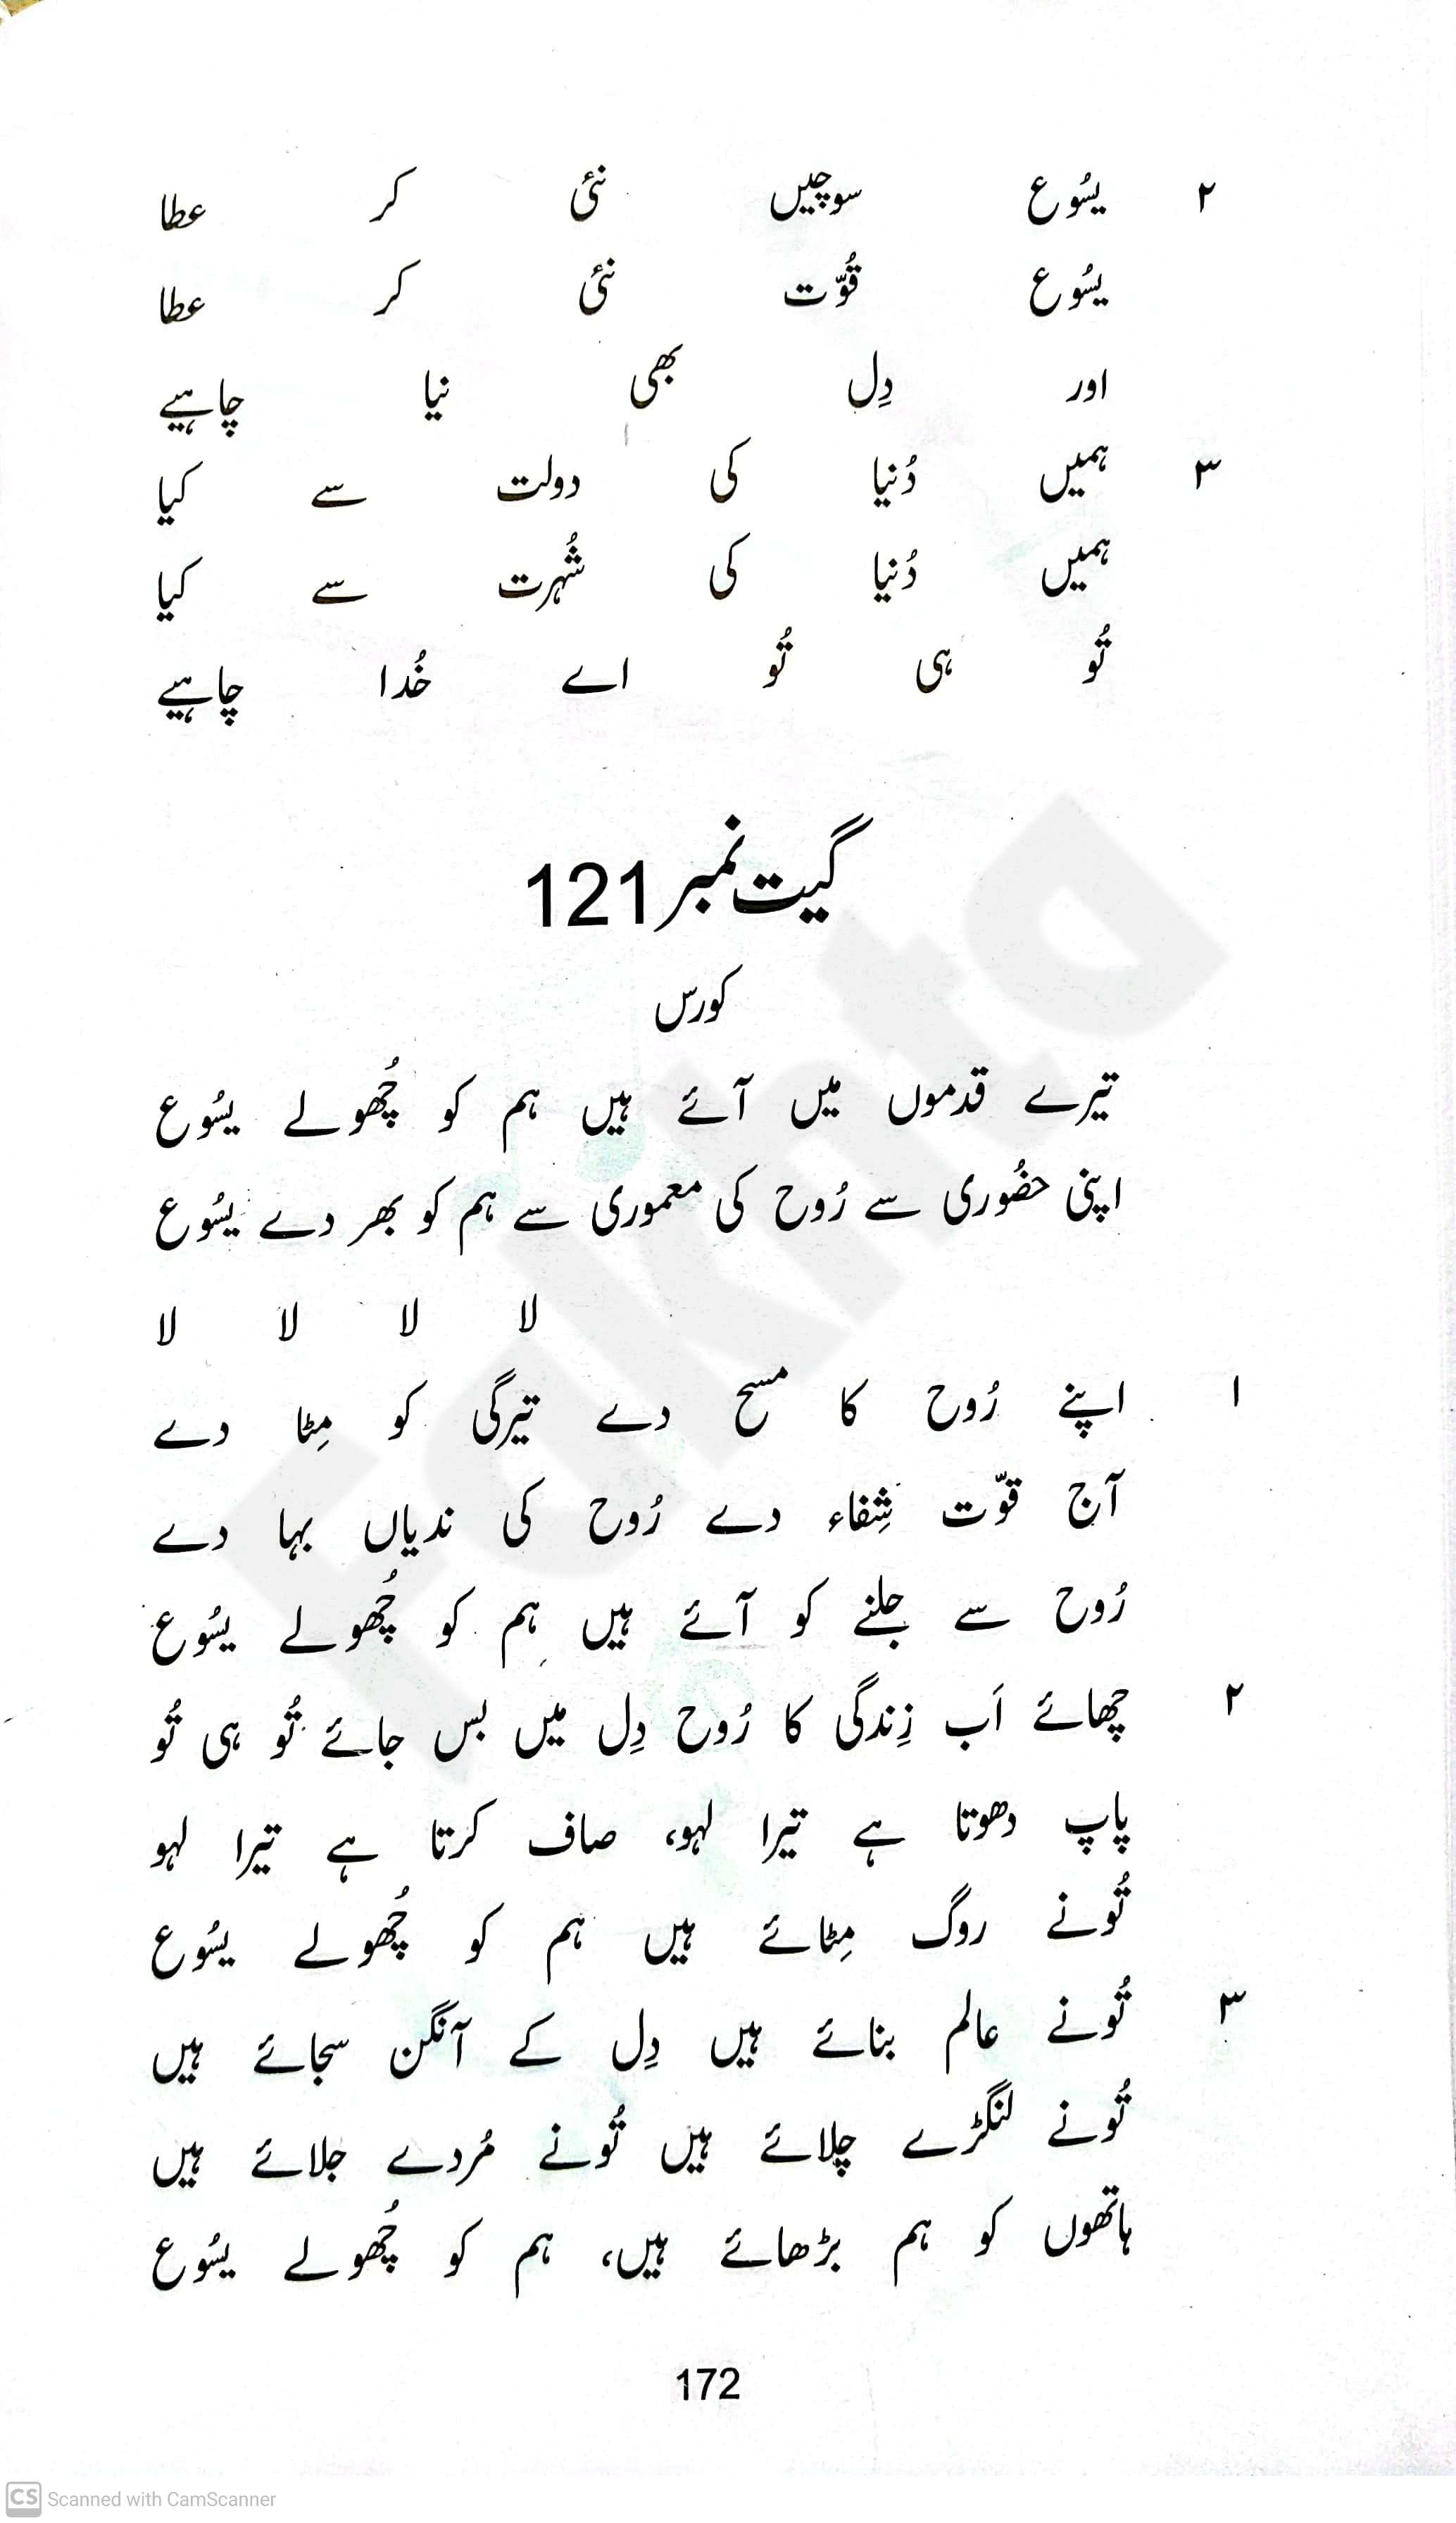 ۲ یسُوع سوچیں نئی کر عطا
یسُوع قُوّت نئی کر عطا
اور دِل بھی نیا چاہیے
۳ ہمیں دُنیا کی دولت سے کیا
ہمیں دُنیا کی شُہرت سے کیا
تُو ہی تُو اے خُدا چاہیے
گیت نمبر 121
کورس
تیرے قدموں میں آئے ہیں ہم کو چُھولے یسُوع
اپنی حضُوری سے رُوح کی معموری سے ہم کو بھر دے یسُوع
لا لا لا لا
۱ اپنے رُوح کا مسح دے تیرگی کو مِٹا دے
آج قوّت شِفاء دے رُوح کی ندیاں بہا دے
رُوح سے جلنے کو آئے ہیں ہم کو چُھولے یسُوع
۲ چھائے اَب زِندگی کا رُوح دِل میں بس جائے تُو ہی تُو
پاپ دھوتا ہے تیرا لہو، صاف کرتا ہے تیرا لہو
تُونے روگ مِٹائے ہیں ہم کو چُھولے یسُوع
۳ تُونے عالم بنائے ہیں دِل کے آنگن سجائے ہیں
تُونے لنگڑے چلائے ہیں تُونے مُردے جلائے ہیں
ہاتھوں کو ہم بڑھائے ہیں، ہم کو چُھولے یسُوع
172
Fakhta
CS Scanned with CamScanner